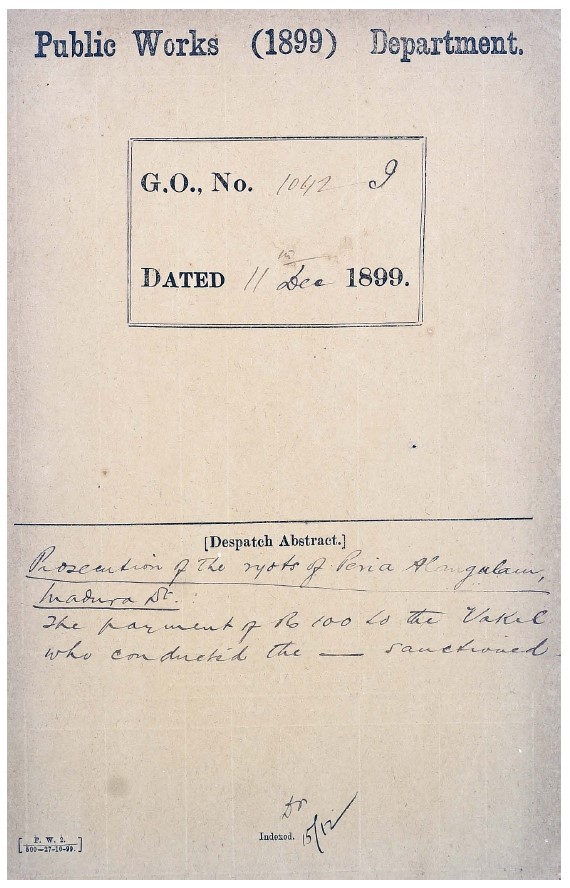 Public Works (1899) Department.
G.O., No. 1042 I
DATED 11 Dec 1899.
[Despatch Abstract.]
Prosecution of the ryots of Peria Alangulam,
Madura Dt.
The payment of Rs 100 to the Vakil
who conducted the — sanctioned
Indexed. 15/12
[P. W. 2.
500—27-10-99.]